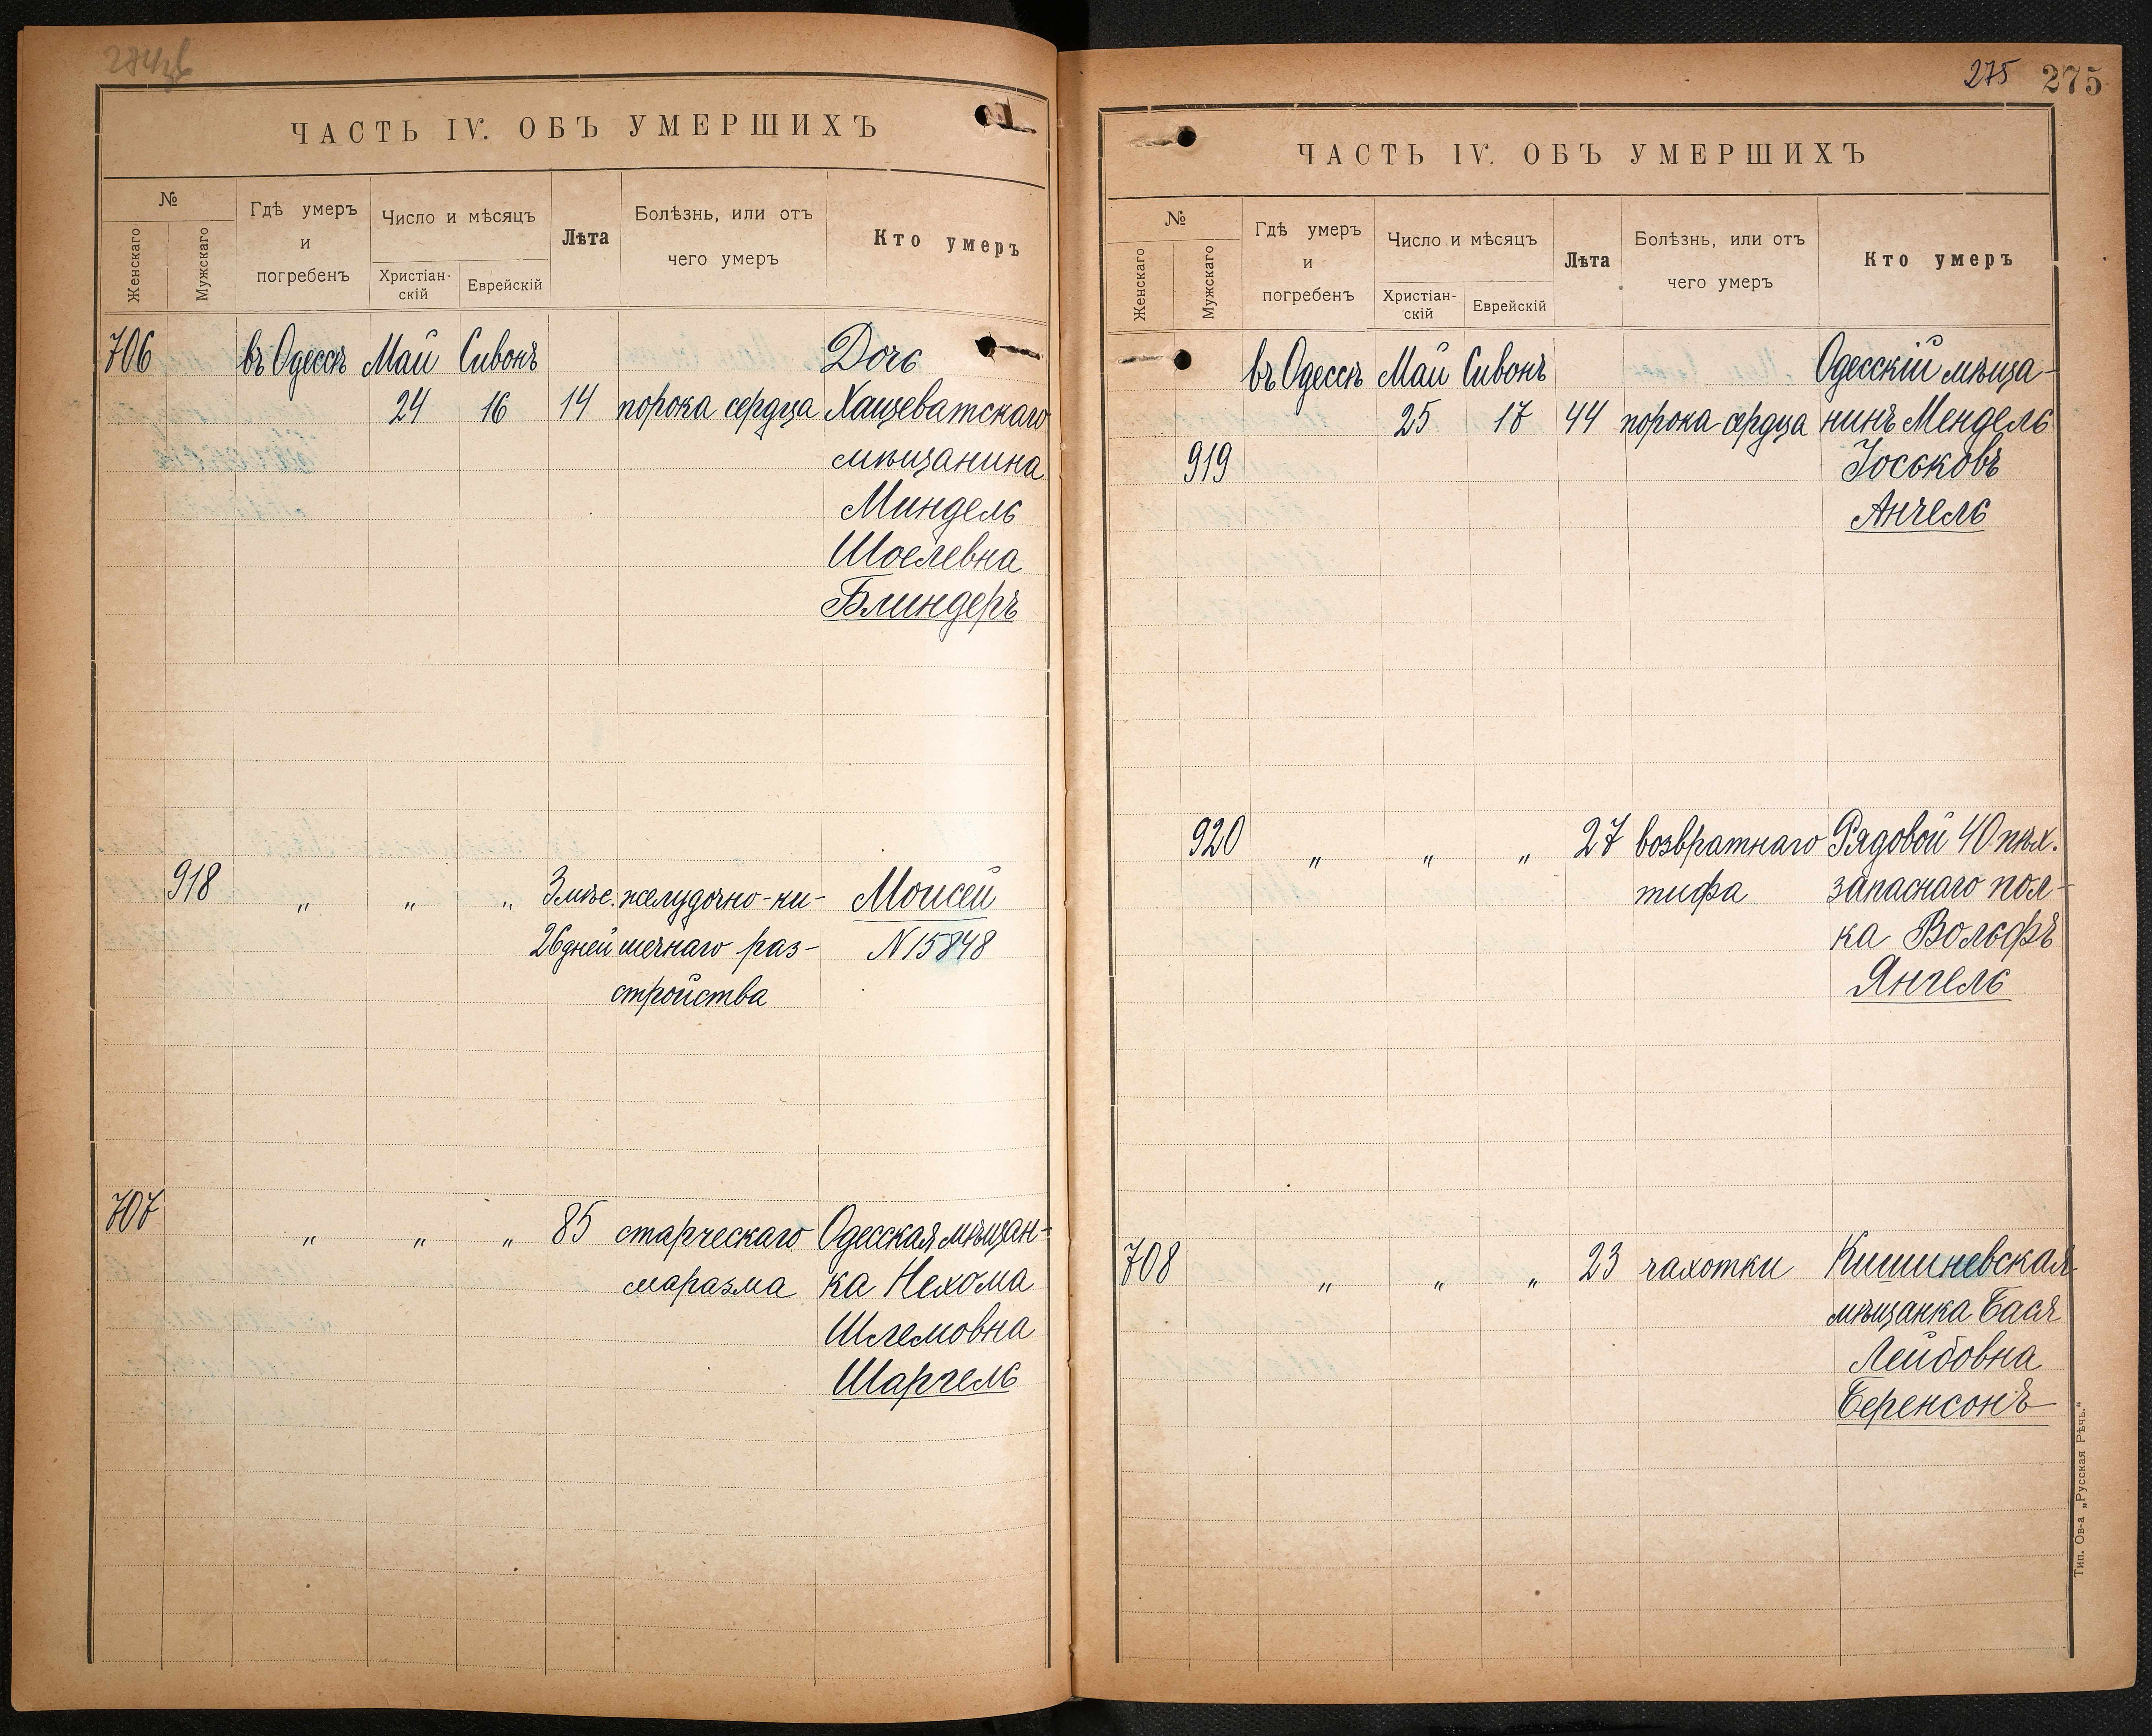 ЧАСТЬ IV. ОБЪ УМЕРШИХЪ
№
Женскаго
Мужскаго
Гдѣ умеръ
и
погребенъ
Число и мѣсяцъ
Христіан-
скій
Еврейскій
Лѣта
Болѣзнь, или отъ
чего умеръ
Кто умеръ
706 въ Одессѣ Май Сивонъ Дочь
24 16 14 порока сердца Хащеватскаго
мѣщанина
Миндель
Шоелевна
Блиндеръ
918 „ „ „ 3 мѣс. желудочно-ки- Моисей
26 дней шечнаго раз- N 15848
стройства
707 „ „ „ 85 старческаго Одесская мѣщан-
маразма ка Нехома
Шлемовна
Шаргель
275 275
ЧАСТЬ IV. ОБЪ УМЕРШИХЪ
№
Женскаго
Мужскаго
Гдѣ умеръ
и
погребенъ
Число и мѣсяцъ
Христіан-
скій
Еврейскій
Лѣта
Болѣзнь, или отъ
чего умеръ
Кто умеръ
въ Одессѣ Май Сивонъ Одесскій мѣща-
25 17 44 порока сердца нинъ Мендель
919 Іоськовъ
Анчель
920 „ „ „ 27 возвратнаго Рядовой 40 пѣх.
тифа запаснаго пол-
ка Вольфъ
Янгель
708 „ „ „ 23 чахотки Кишиневская
мѣщанка Бася
Лейбовна
Беренсонъ
Тип. Ов-а „Русская Рѣчь.“